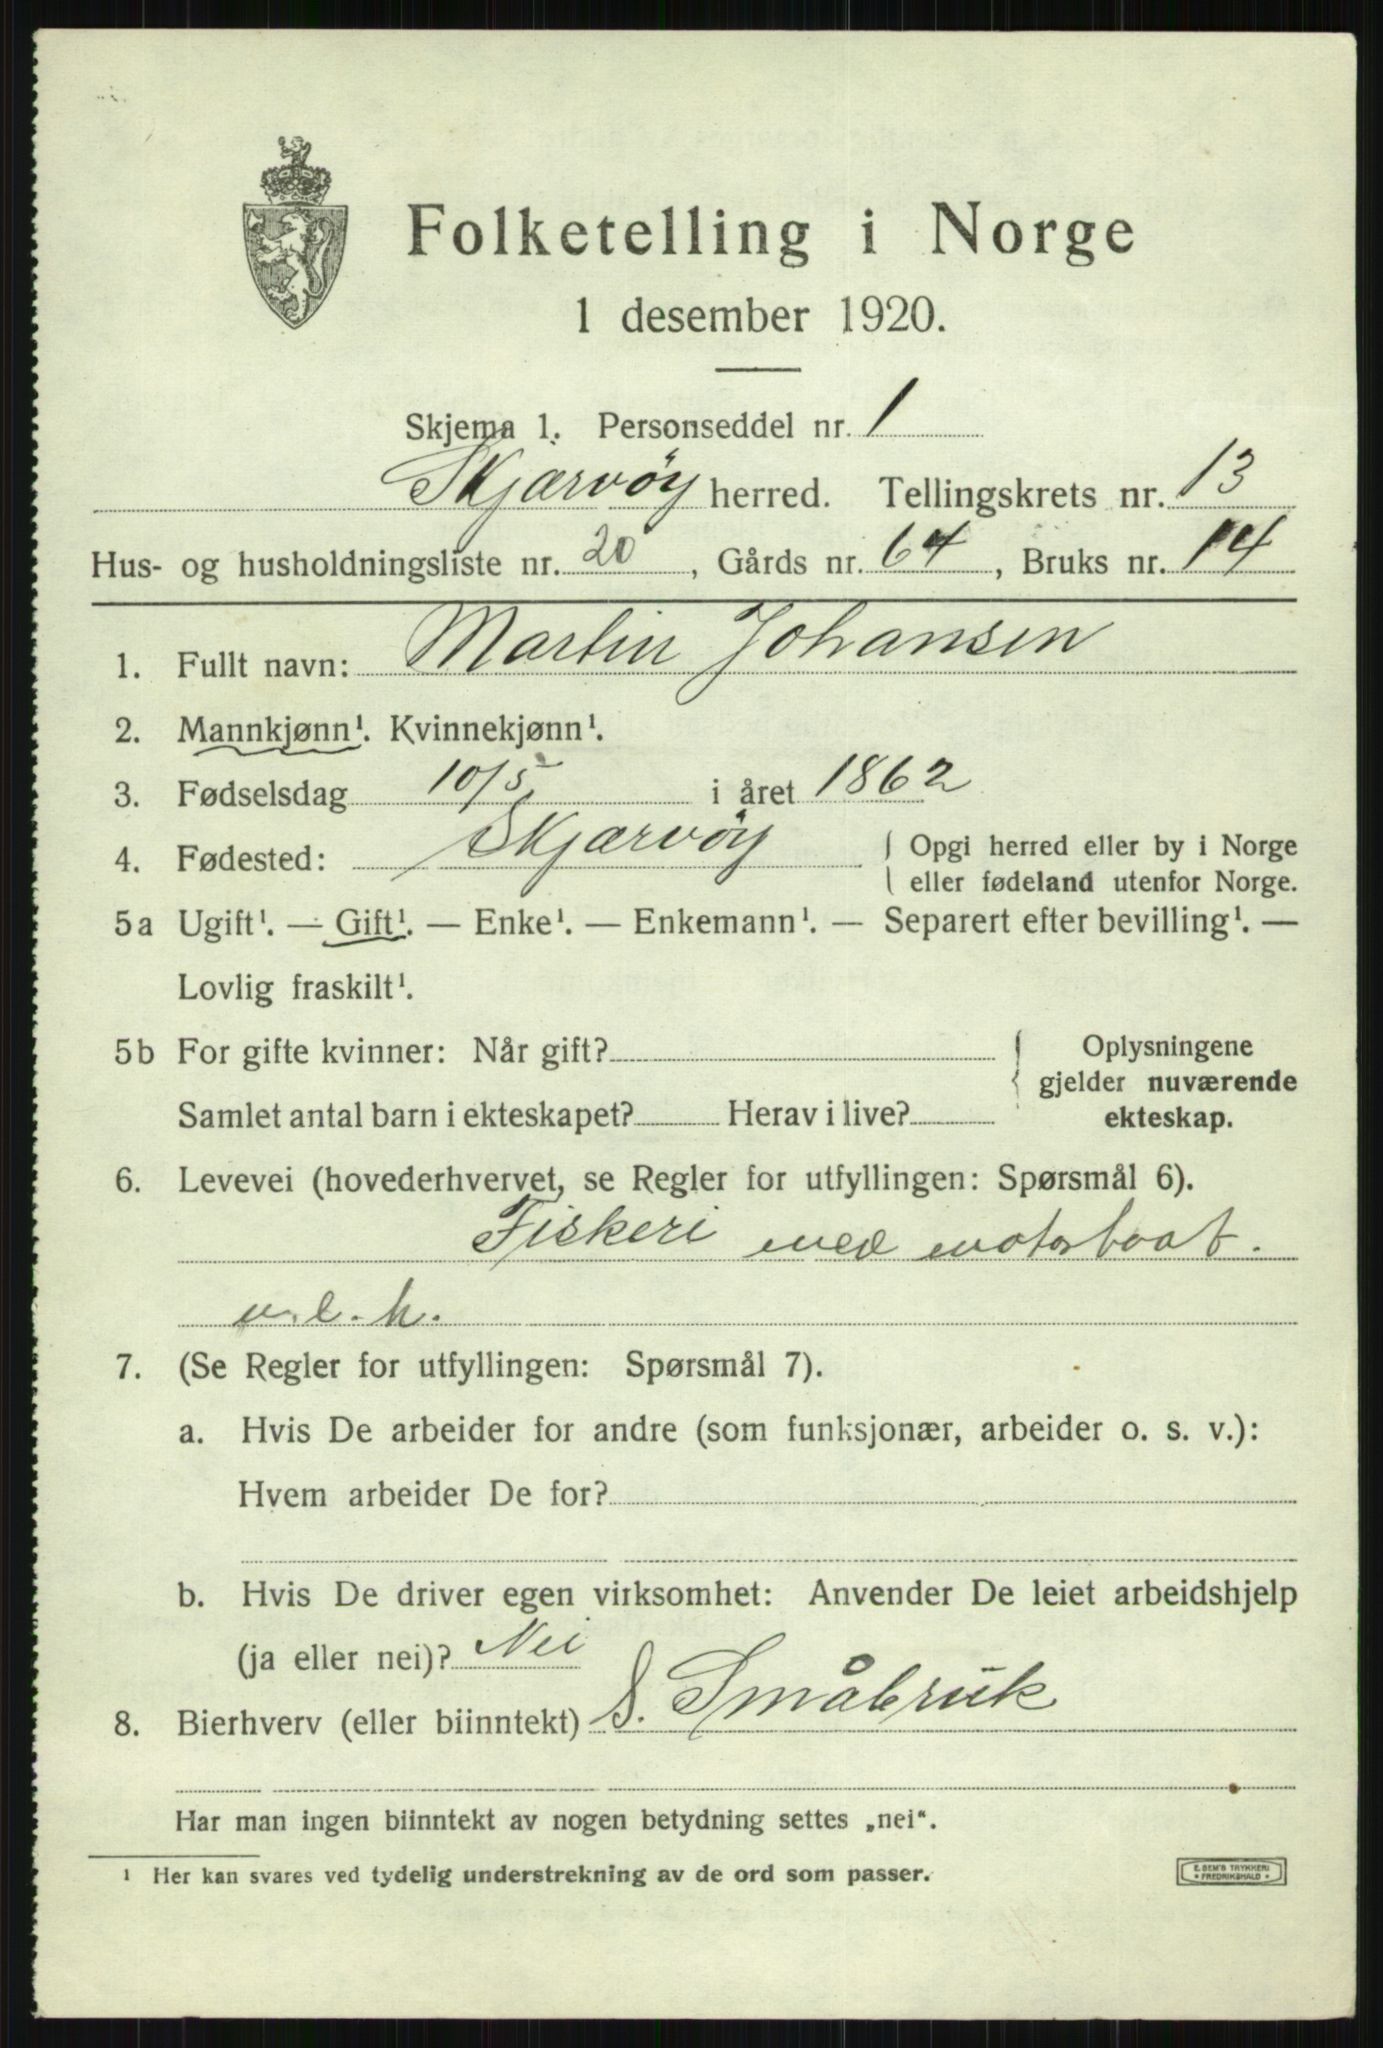 Folketelling i Norge
1 desember 1920.
Skjema 1. Personseddel nr. 1
Skjærvøy herred. Tellingskrets nr. 13
Hus- og husholdningsliste nr. 20, Gårds nr. 64, Bruks nr. 14
1. Fullt navn: Martin Johansen
2. Mannkjønn¹. Kvinnekjønn¹.
3. Fødselsdag 10/5 i året 1862
4. Fødested: Skjærvøy { Opgi herred eller by i Norge
eller fødeland utenfor Norge.
5a Ugift¹. — Gift¹. — Enke¹. — Enkemann¹. — Separert efter bevilling¹. —
Lovlig fraskilt¹.
5b For gifte kvinner: Når gift?
Samlet antal barn i ekteskapet? Herav i live?
Oplysningene
gjelder nuværende
ekteskap.
6. Levevei (hovederhvervet, se Regler for utfyllingen: Spørsmål 6).
Fiskeri med motorbaat.
7. (Se Regler for utfyllingen: Spørsmål 7).
a. Hvis De arbeider for andre (som funksjonær, arbeider o. s. v.):
Hvem arbeider De for?
b. Hvis De driver egen virksomhet: Anvender De leiet arbeidshjelp
(ja eller nei)? Nei
8. Bierhverv (eller biinntekt) S. Småbruk
Har man ingen biinntekt av nogen betydning settes „nei“.
¹ Her kan svares ved tydelig understrekning av de ord som passer.
E. SEM'S TRYKKERI
* FREDRIKSHALD *